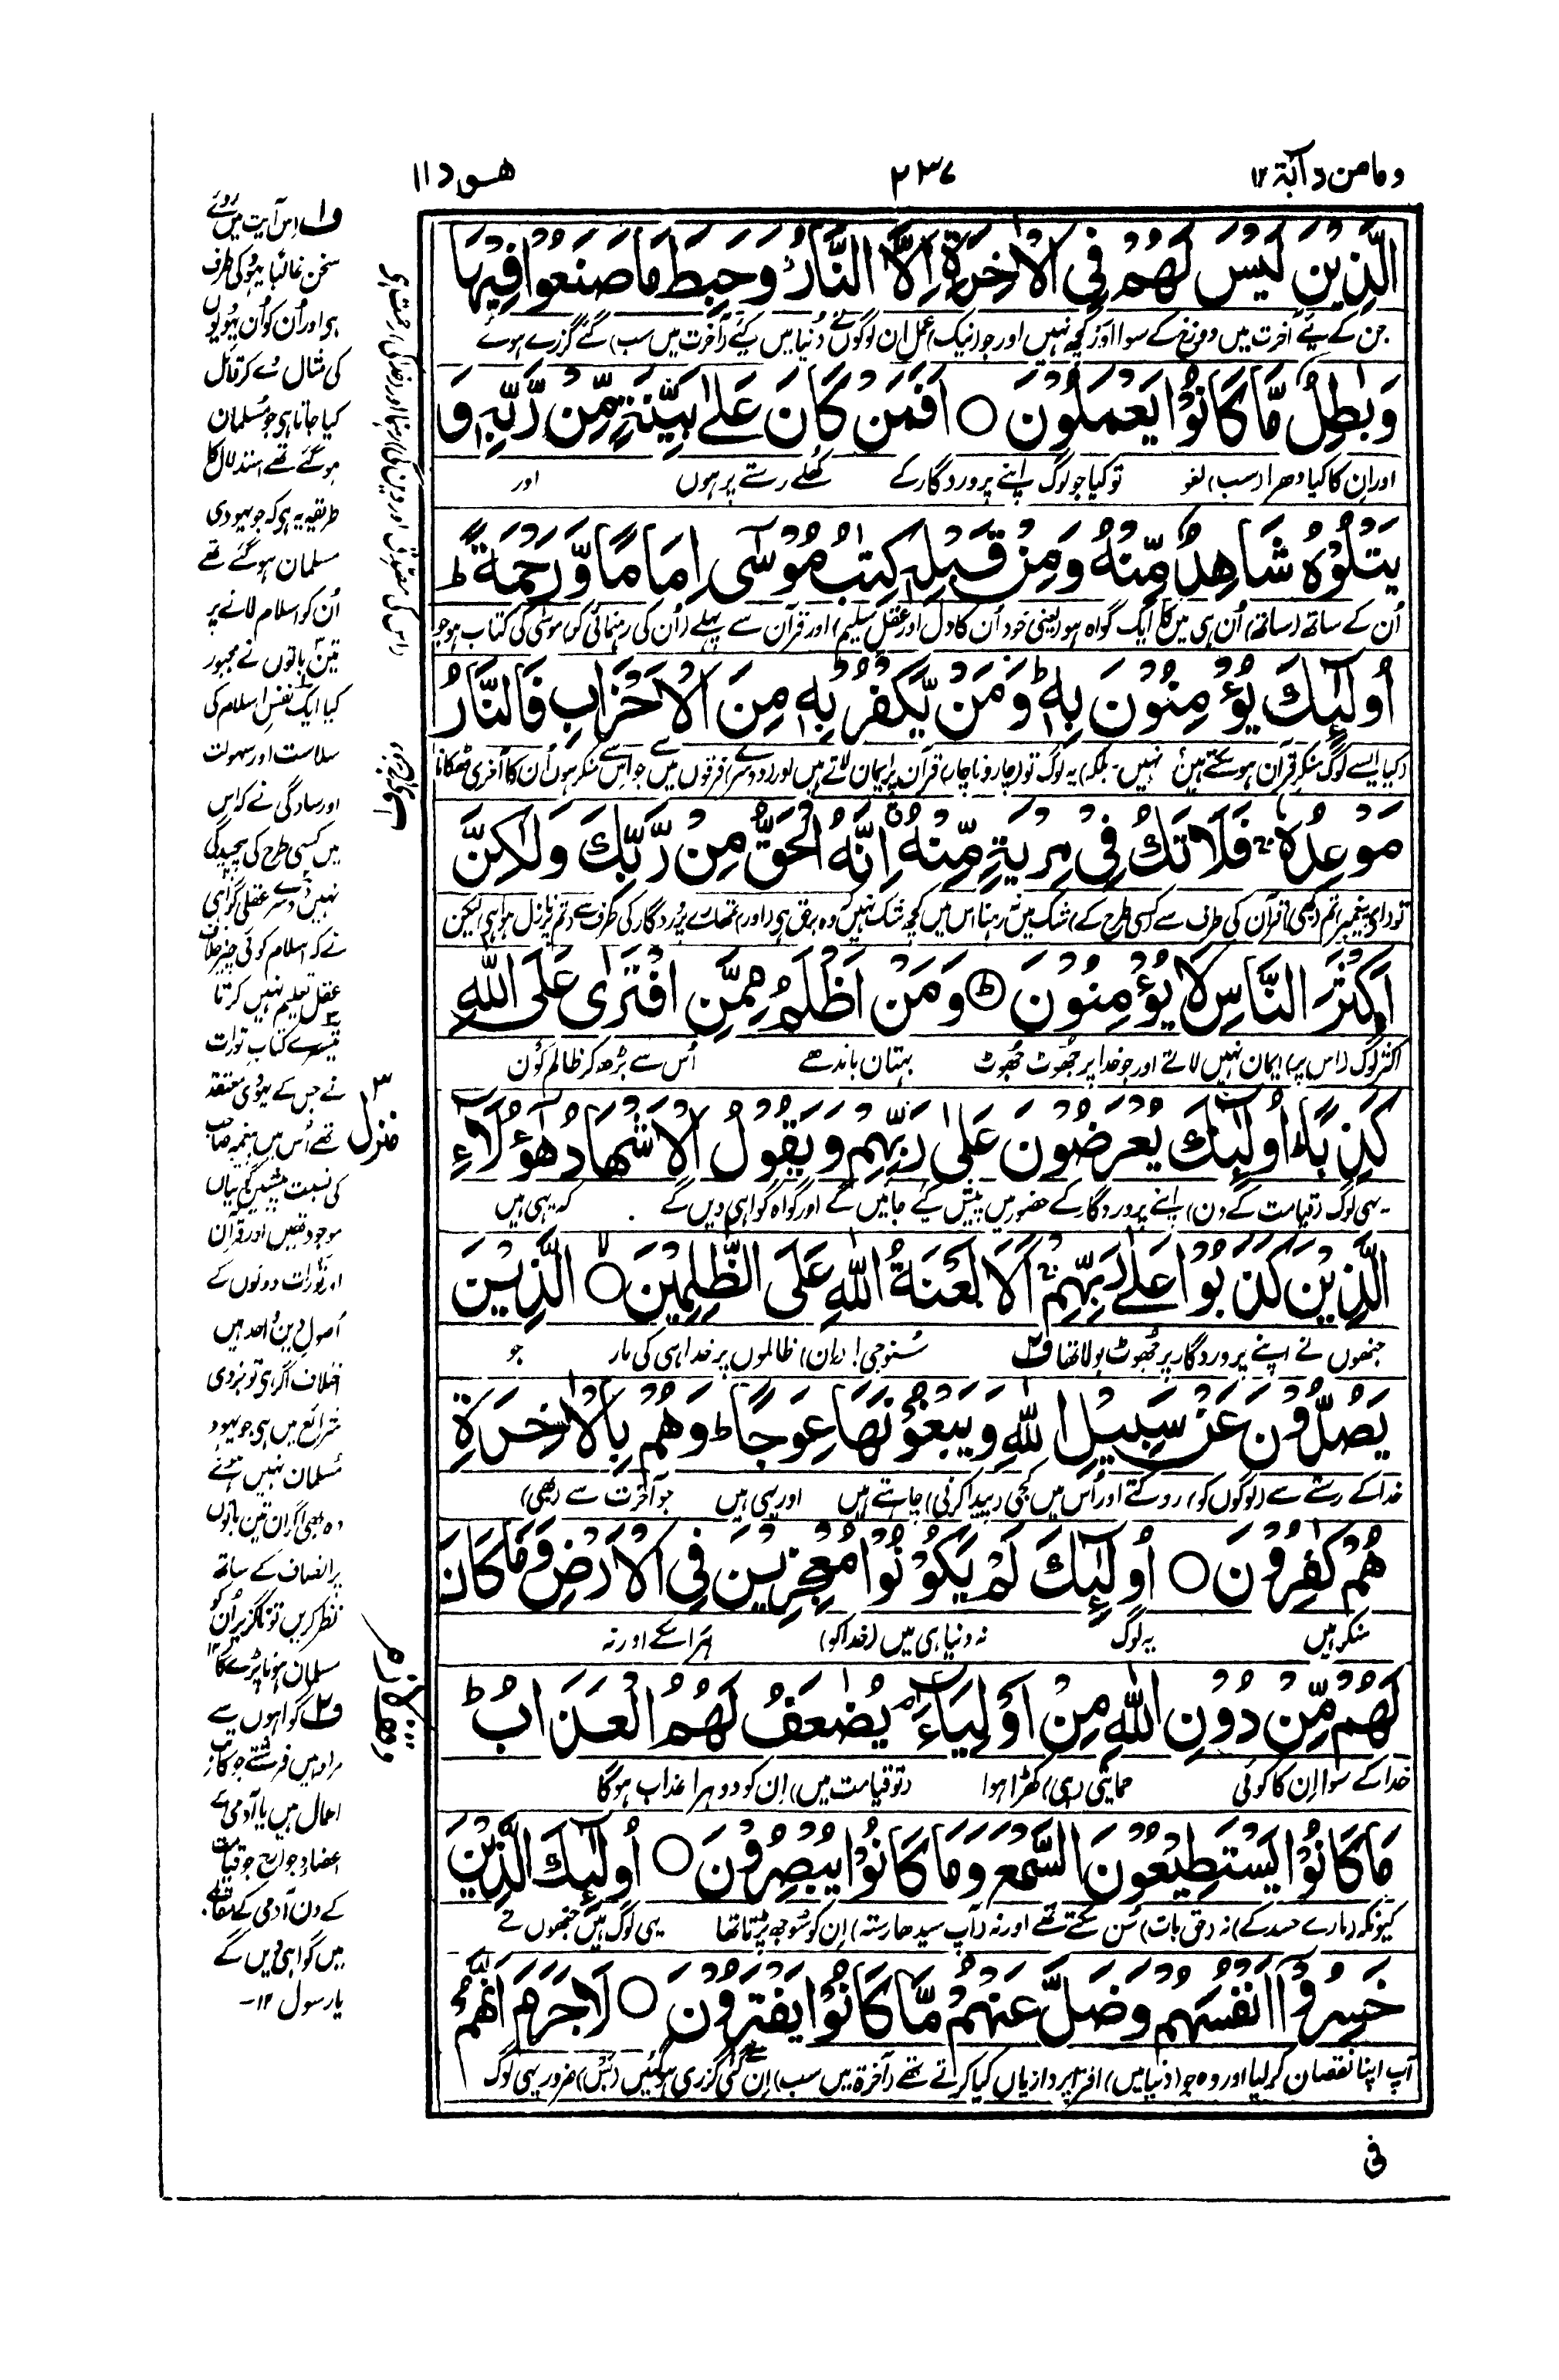 ومامن دآبۃ ۱۲
۲۳۷
ھود ۱۱
الَّذِیْنَ لَیْسَ لَھُمْ فِی الْاٰخِرَۃِ اِلَّا النَّارُ وَحَبِطَ مَا صَنَعُوْا فِیْہَا
جن کے لیے آخرت میں دوزخ کے سوا اور کچھ نہیں اور جو (نیک) عمل ان لوگوں نے دُنیا میں کیے (آخرت میں سب) گئے گزرے ہوئے
وَبٰطِلٌ مَّا کَانُوْا یَعْمَلُوْنَ ○ اَفَمَنْ کَانَ عَلٰی بَیِّنَۃٍ مِّنْ رَّبِّہٖ وَ
اور ان کا کیا دھرا (سب) لغو تو کیا جو لوگ اپنے پروردگار کے کُھلے رستے پر ہوں اور
یَتْلُوْہُ شَاھِدٌ مِّنْہُ وَمِنْ قَبْلِہٖ کِتٰبُ مُوْسٰۤی اِمَامًا وَّرَحْمَۃً ؕ
اُن کے ساتھ (ساتھ) اُن ہی میں کا ایک گواہ ہو (یعنی خود اُن کا دل اور عقل سلیم) اور قرآن سے پہلے (اُن کی رہنمائی کو) موسٰی کی کتاب ہو جو
اُولٰٓئِکَ یُؤْمِنُوْنَ بِہٖ ؕ وَمَنْ یَّکْفُرْ بِہٖ مِنَ الْاَحْزَابِ فَالنَّارُ
(کیا ایسے لوگ منکر قرآن ہو سکتے ہیں؟ نہیں۔ بلکہ) یہ لوگ تو (چار و ناچار) قرآن پر ایمان لاتے ہیں اور (دوسرے) فرقوں میں جو اس سے منکر ہوں اُن کا آخری ٹھکانا
مَوْعِدُہٗ ۚ فَلَا تَکُ فِیْ مِرْیَۃٍ مِّنْہُ ۗ اِنَّہُ الْحَقُّ مِنْ رَّبِّکَ وَلٰکِنَّ
تو (اے پیغمبر) تم (بھی) قرآن کی طرف سے (کسی طرح کے) شک میں نہ رہنا اس میں کچھ شک نہیں کہ وہ برحق ہی (اور) تمھارے پروردگار کی طرف سے (تم پر نازل ہوا) ہی لیکن
اَکْثَرَ النَّاسِ لَا یُؤْمِنُوْنَ ○ وَمَنْ اَظْلَمُ مِمَّنِ افْتَرٰی عَلَی اللّٰہِ
اکثر لوگ (اس پر) ایمان نہیں لاتے اور جو خدا پر جُھوٹ جُھوٹ بہتان باندھے اُس سے بڑھ کر ظالم کون
کَذِبًا ؕ اُولٰٓئِکَ یُعْرَضُوْنَ عَلٰی رَبِّہِمْ وَیَقُوْلُ الْاَشْھَادُ ھٰٓؤُلَآءِ
یہی لوگ (قیامت کے دن) اپنے پروردگار کے حضور میں پیش کیے جائیں گے اور گواہ گواہی دیں گے کہ یہی ہیں
الَّذِیْنَ کَذَبُوْا عَلٰی رَبِّہِمْ ۚ اَلَا لَعْنَۃُ اللّٰہِ عَلَی الظّٰلِمِیْنَ ○ الَّذِیْنَ
جنھوں نے اپنے پروردگار پر جُھوٹ بولا تھا ف۲ سُنو جی! (ان) ظالموں پر خدا ہی کی مار جو
یَصُدُّوْنَ عَنْ سَبِیْلِ اللّٰہِ وَیَبْغُوْنَھَا عِوَجًا ؕ وَھُمْ بِالْاٰخِرَۃِ
خدا کے رستے سے (لوگوں کو) روکتے اور اُس میں کجی (پیدا کرنی) چاہتے ہیں اور یہی ہیں جو آخرت سے (بھی)
ھُمْ کٰفِرُوْنَ ○ اُولٰٓئِکَ لَمْ یَکُوْنُوْا مُعْجِزِیْنَ فِی الْاَرْضِ وَمَا کَانَ
منکر ہیں یہ لوگ نہ دنیا ہی میں (خدا کو) ہرا سکے اور نہ
لَھُمْ مِّنْ دُوْنِ اللّٰہِ مِنْ اَوْلِیَآءَ ۘ یُضٰعَفُ لَھُمُ الْعَذَابُ ؕ
خدا کے سوا ان کا کوئی حمایتی (ہی) کھڑا ہوا (تو قیامت میں) ان کو دوہرا عذاب ہوگا
مَا کَانُوْا یَسْتَطِیْعُوْنَ السَّمْعَ وَمَا کَانُوْا یُبْصِرُوْنَ ○ اُولٰٓئِکَ الَّذِیْنَ
کیونکہ (مارے حسد کے) نہ (حق بات) سُن سکتے تھے اور نہ (آپ سیدھا رستہ) ان کو سُوجھ پڑتا تھا یہی لوگ ہیں جنھوں نے
خَسِرُوْۤا اَنْفُسَہُمْ وَضَلَّ عَنْہُمْ مَّا کَانُوْا یَفْتَرُوْنَ ○ لَاجَرَمَ اَنَّھُمْ
آپ اپنا نقصان کر لیا اور وہ جو (دنیا میں) افترا پردازیاں کیا کرتے تھے (آخرۃ میں سب) ان سے گئی گزری ہوگئیں (بس) ضرور یہی لوگ
فی
ف۱ اس آیت میں روئے
سخن غالباً یہود کی طرف
ہی اور اُن کو اُن یہودیوں
کی مثال دے کر قائل
کیا جاتا ہی جو مُسلمان
ہوگئے تھے استدلال کا
طریقہ یہ ہی کہ جو یہودی
مسلمان ہوگئے تھے
اُن کو اسلام لانے پر
تین باتوں نے مجبور
کیا ایک نفس اسلام کی
سلاست اور سہولت
اور سادگی نے کہ اس
میں کسی طرح کی پیچیدگی
نہیں دوسرے عقلی گواہی
نے کہ اسلام کوئی چیز خلاف
عقل تعلیم نہیں کرتا
تیسرے کتاب تورات
نے جس کے یہودی معتقد
تھے اُس میں پیغمبر صاحب
کی نسبت پیشین گوئیاں
موجود تھیں اور قرآن
اور تورات دونوں کے
اصول دین واحد ہیں
اختلاف اگر ہی تو فروعی
شرائع میں ہی جو یہود
مُسلمان نہیں ہوئے
وہ بھی اگر ان تین باتوں
پر انصاف کے ساتھ
نظر کریں تو ناگزیر اُن کو
مسلمان ہونا پڑے گا ۱۲
ف۲ گواہوں سے
مراد ہیں فرشتے جو کاتب
اعمال ہیں یا آدمی کے
اعضاء و جوارح جو قیامت
کے دن آدمی کے مقابلے
میں گواہی دیں گے
یا رسول ۱۲-
منزل ۳